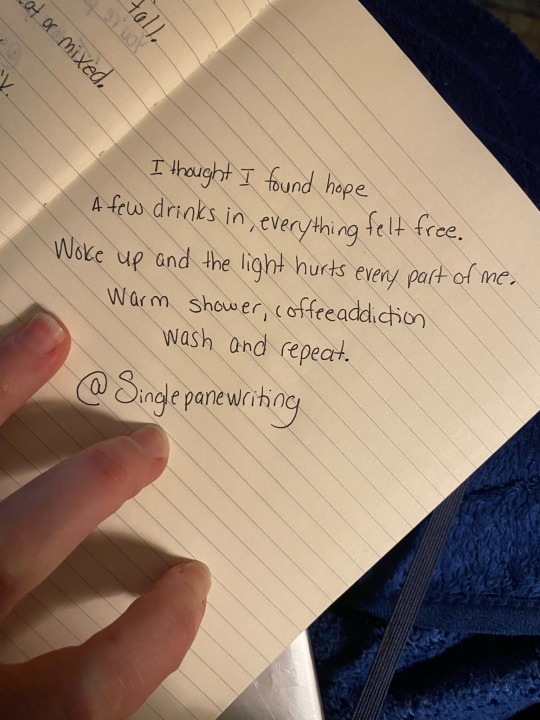 fall.
or mixed.
I thought I found hope
A few drinks in, everything felt free.
Woke up and the light hurts every part of me.
Warm shower, coffeeaddiction
Wash and repeat.
@Singlepanewriting